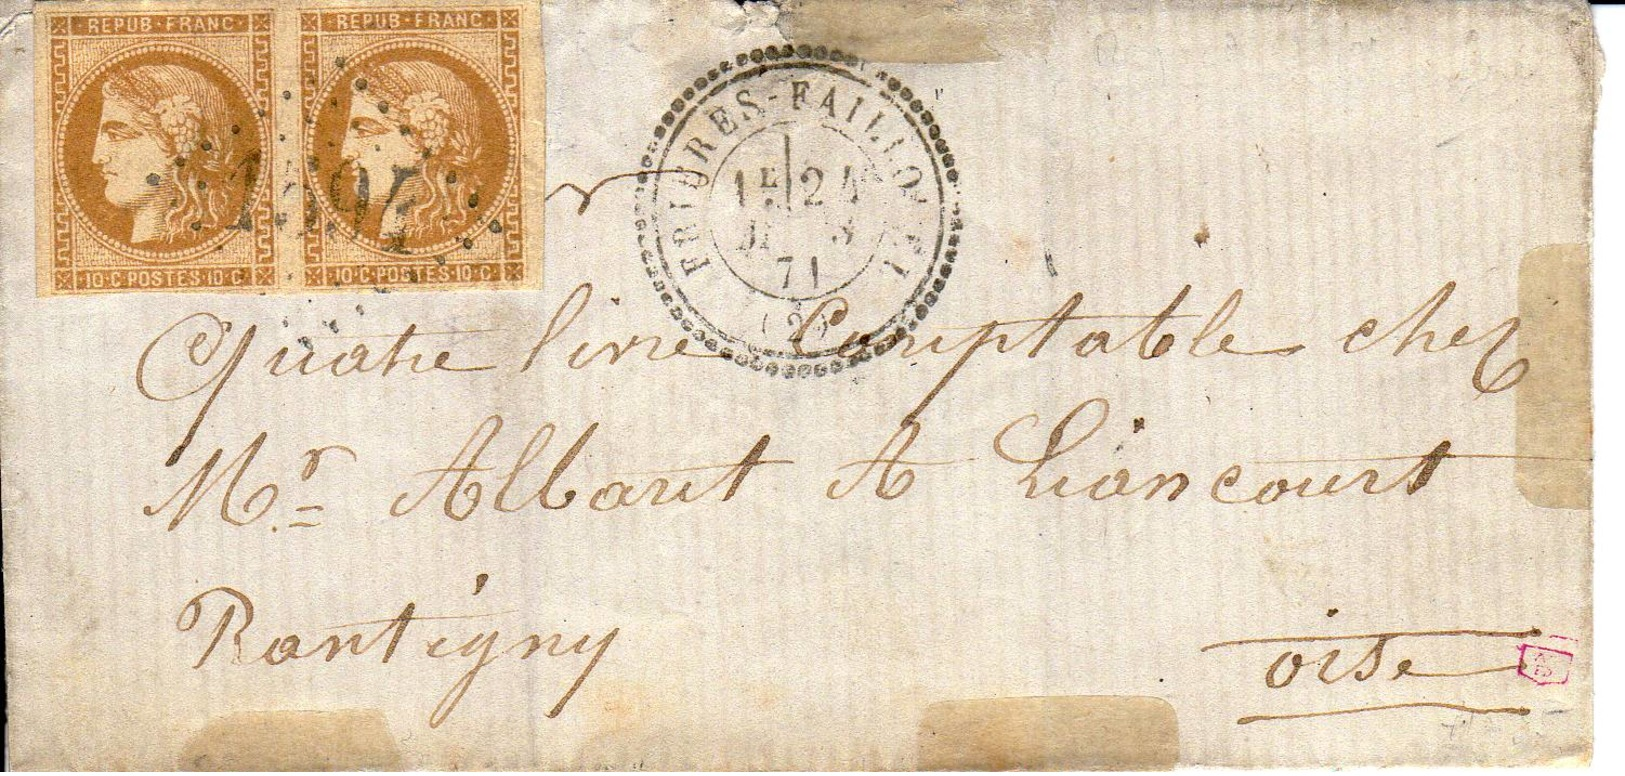 REPUB·FRANC REPUB·FRANC
10·C·POSTES·10·C 10·C·POSTES·10·C
FRIÈRES-FAILLOUEL
1E 24
71
(2)
Quatre livre Comptable chez
Mr Albaret A Liancourt
Rantigny
oise